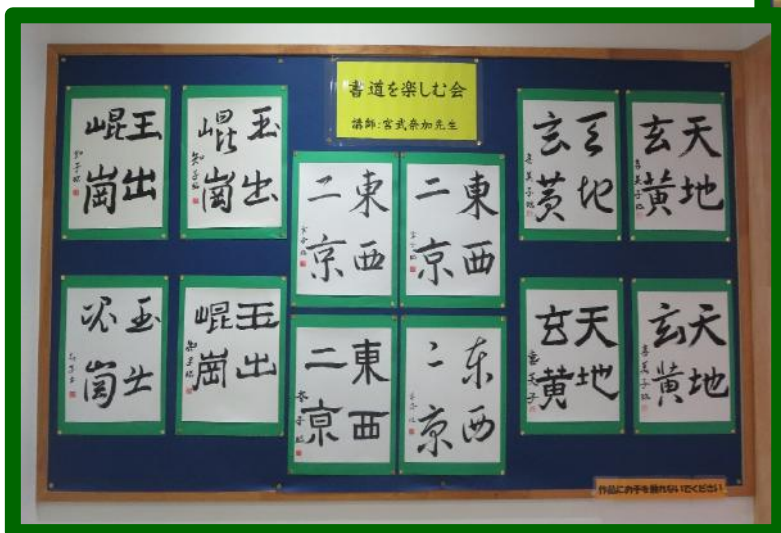 書道を楽しむ会
講師:宮武奈加先生
玉出
崐崗
玉出
崐崗
玉出
崗
玉出
崐崗
東西
二京
東西
二京
東西
二京
东西
二京
天地
玄黄
天地
玄黄
天地
玄黄
天地
玄黄
作品にお手を触れないでください